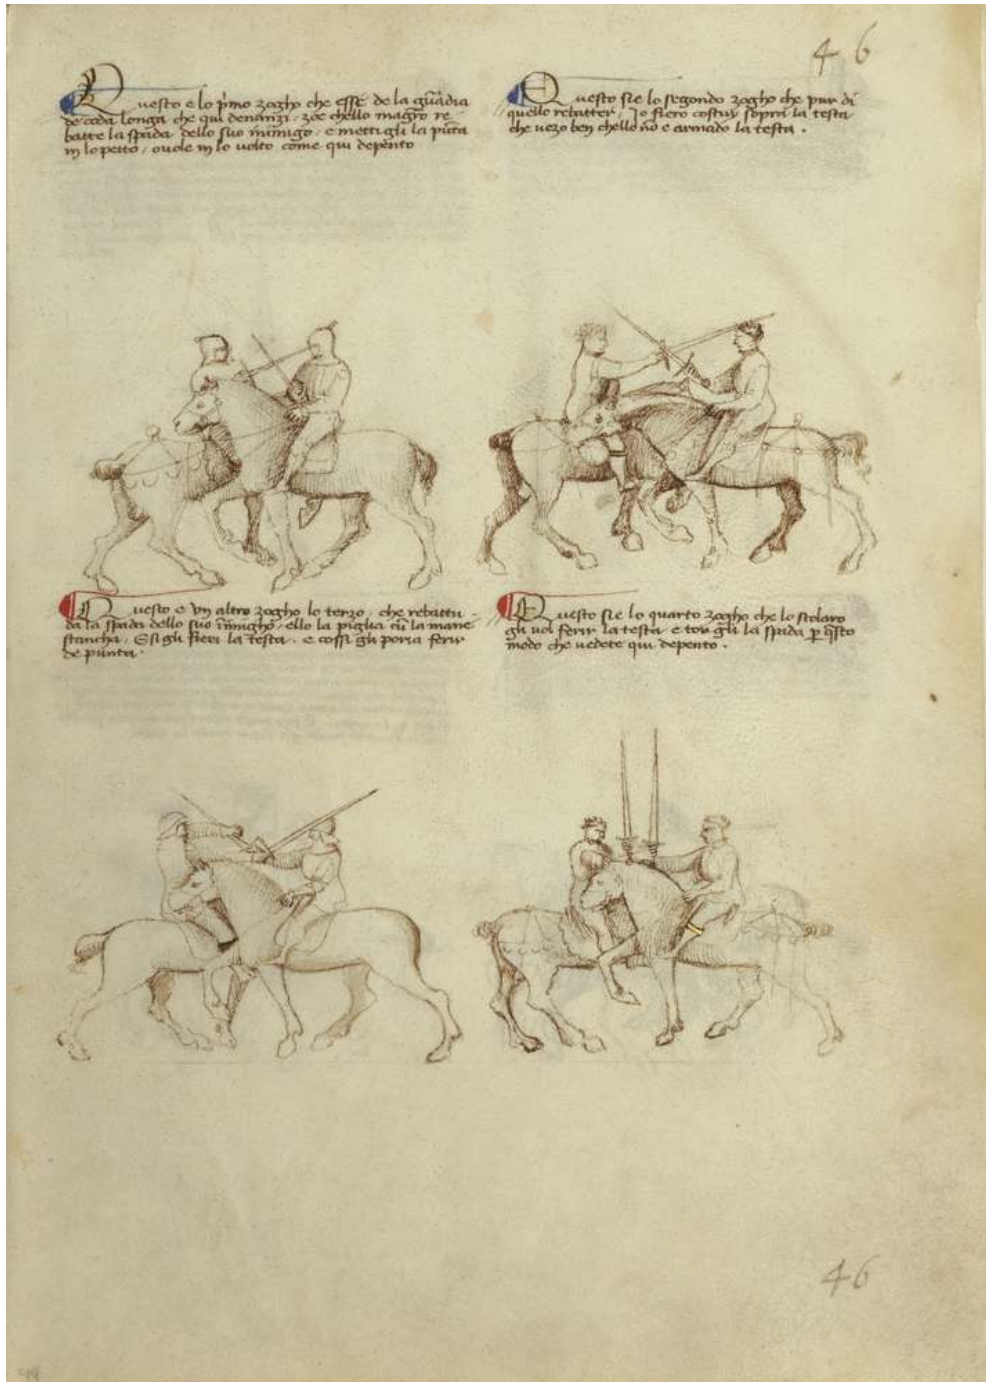 46
Questo e lo p̃mo zogho che esse de la guãdia
de coda longa che qui denanzi. zoe chello magro re
batte la spada dello suo inimigo. e mettigli la pũta
in lo petto, o vole in lo volto come qui depento
Questo sie lo segondo zogho che pur di
quello rebatter, Io fiero costuy sopra la testa
che vezo ben chello nõ e armado la testa.
Questo e un altro zogho lo terzo, che rebattu
da la spada dello suo inimigho, ello la piglia cũ la mane
stancha, E si gli fieri la testa. e cossi gli poria ferir
de punta.
Questo sie lo quarto zogho che lo scolaro
gli vol ferir la testa e tor gli la spada p q̃sto
modo che vedete qui depento.
46